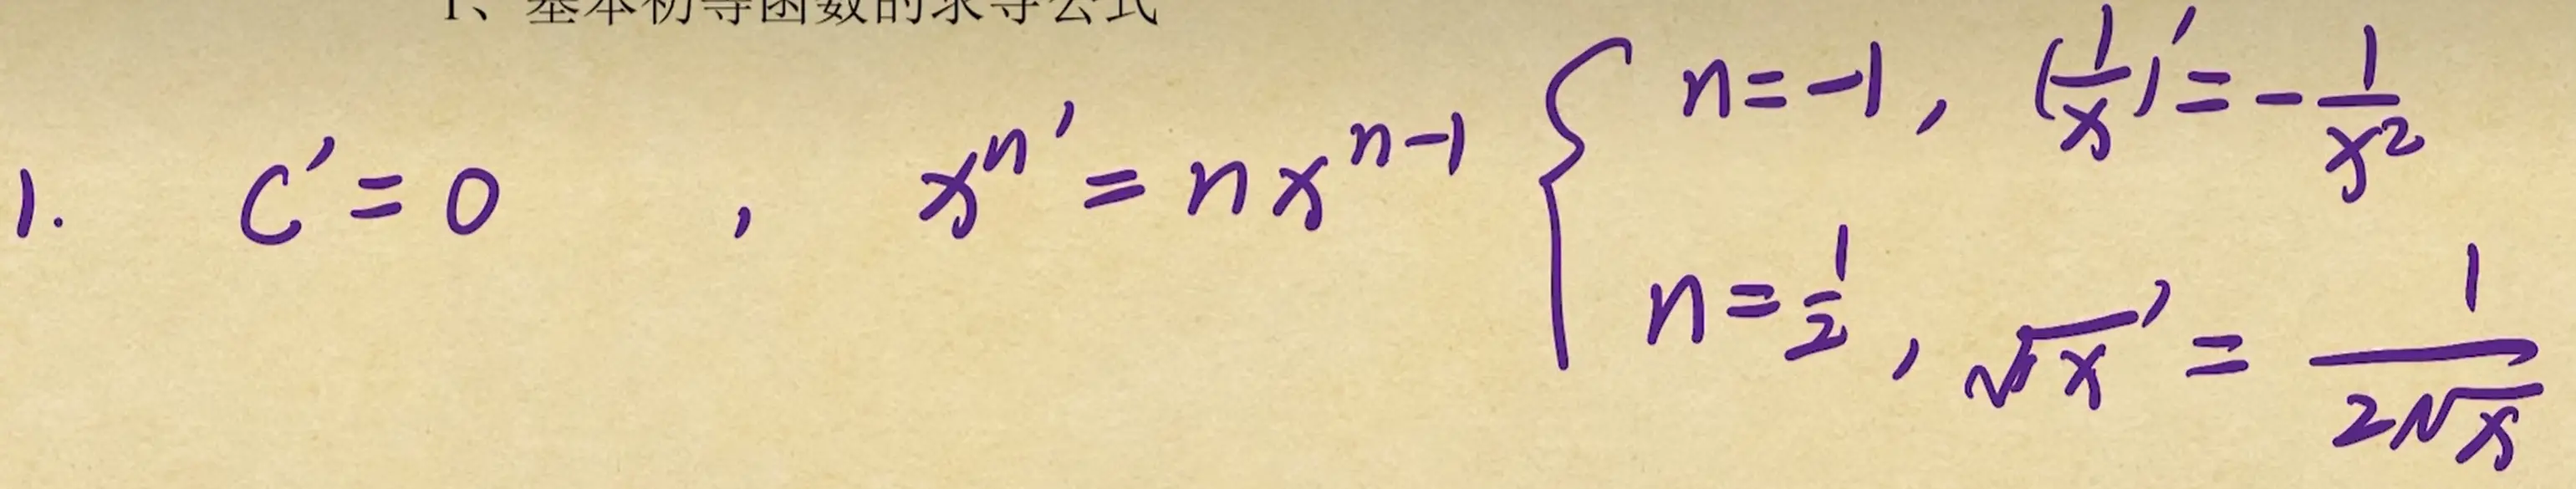 1、基本初等函数的求导公式
1. C' = 0 , xⁿ' = nxⁿ⁻¹ { n = -1, (1/x)' = -1/x²
n = 1/2, √x' = 1/(2√x)